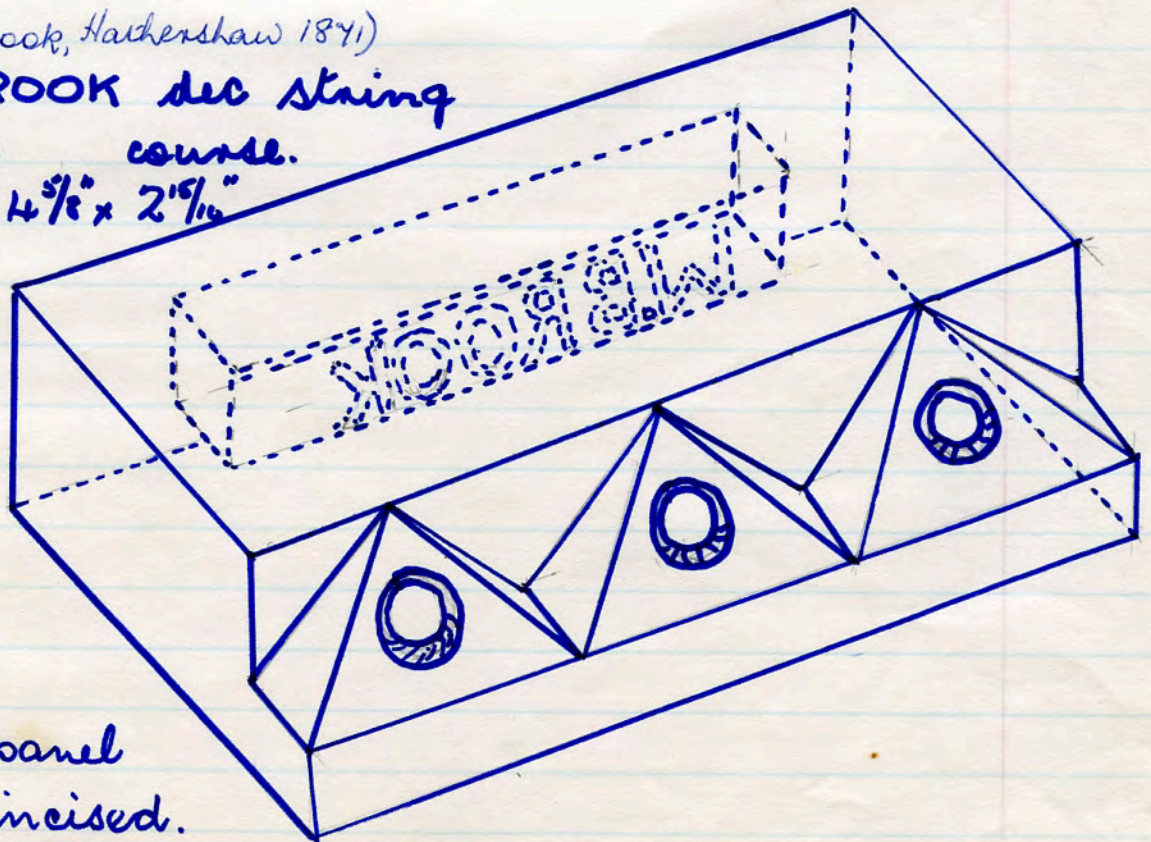 ook, Hathershaw 1871)
ROOK dec string
course.
4 5/8" x 2 15/16"
MBROOK
panel
incised.